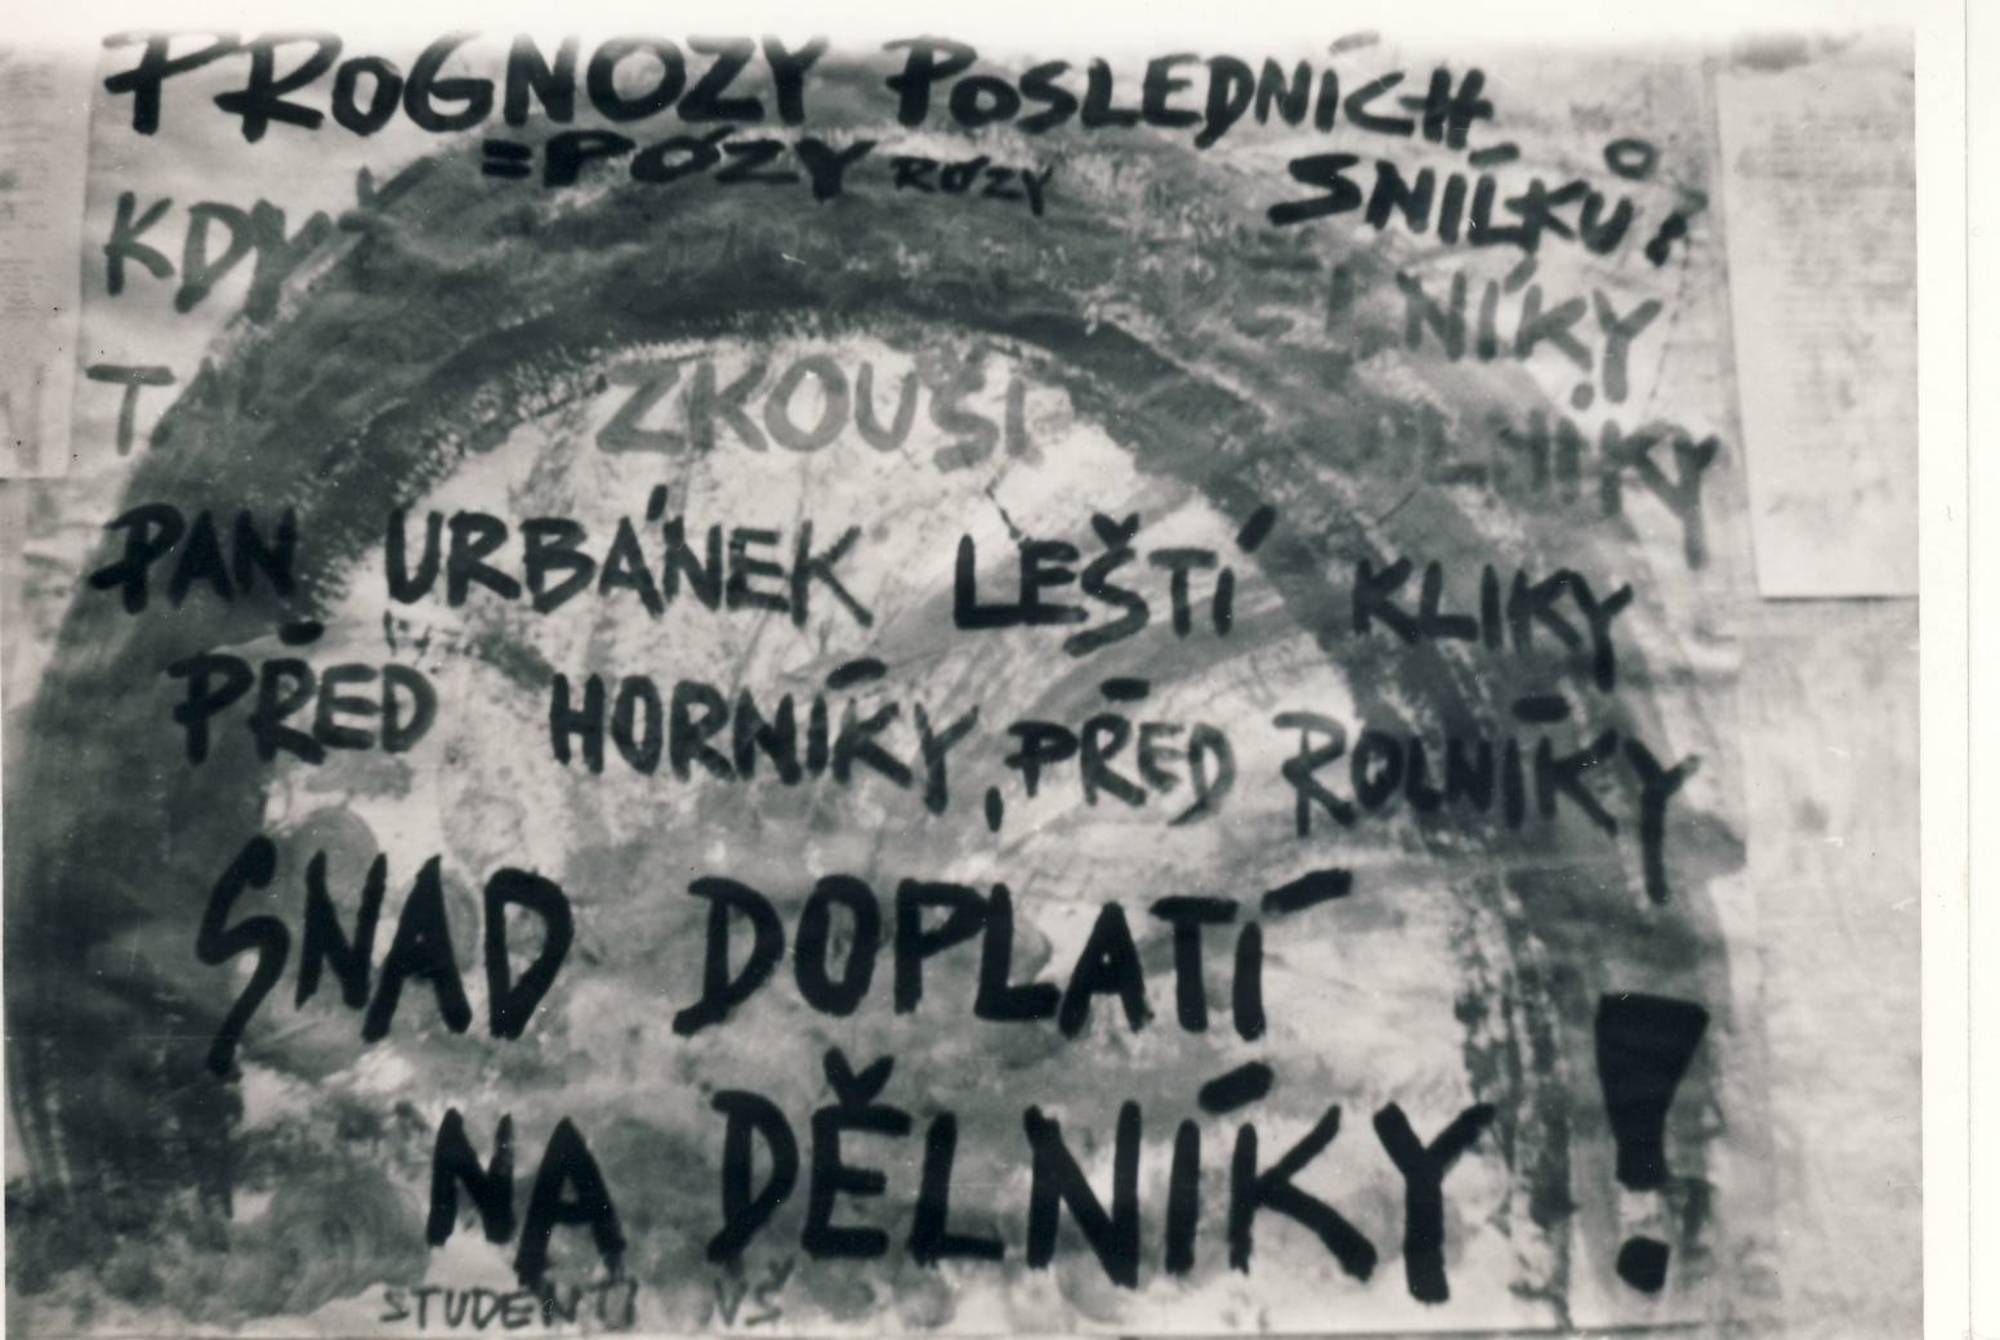 PROGNOZY POSLEDNÍCH
=PÓZY RÓZY SNÍLKŮ!
KDY
NÍKY
ZKOUŠÍ
PAN URBÁNEK LEŠTÍ KLIKY
PŘED HORNÍKY, PŘED ROLNÍKY
SNAD DOPLATÍ
NA DĚLNÍKY!
STUDENTI VŠ